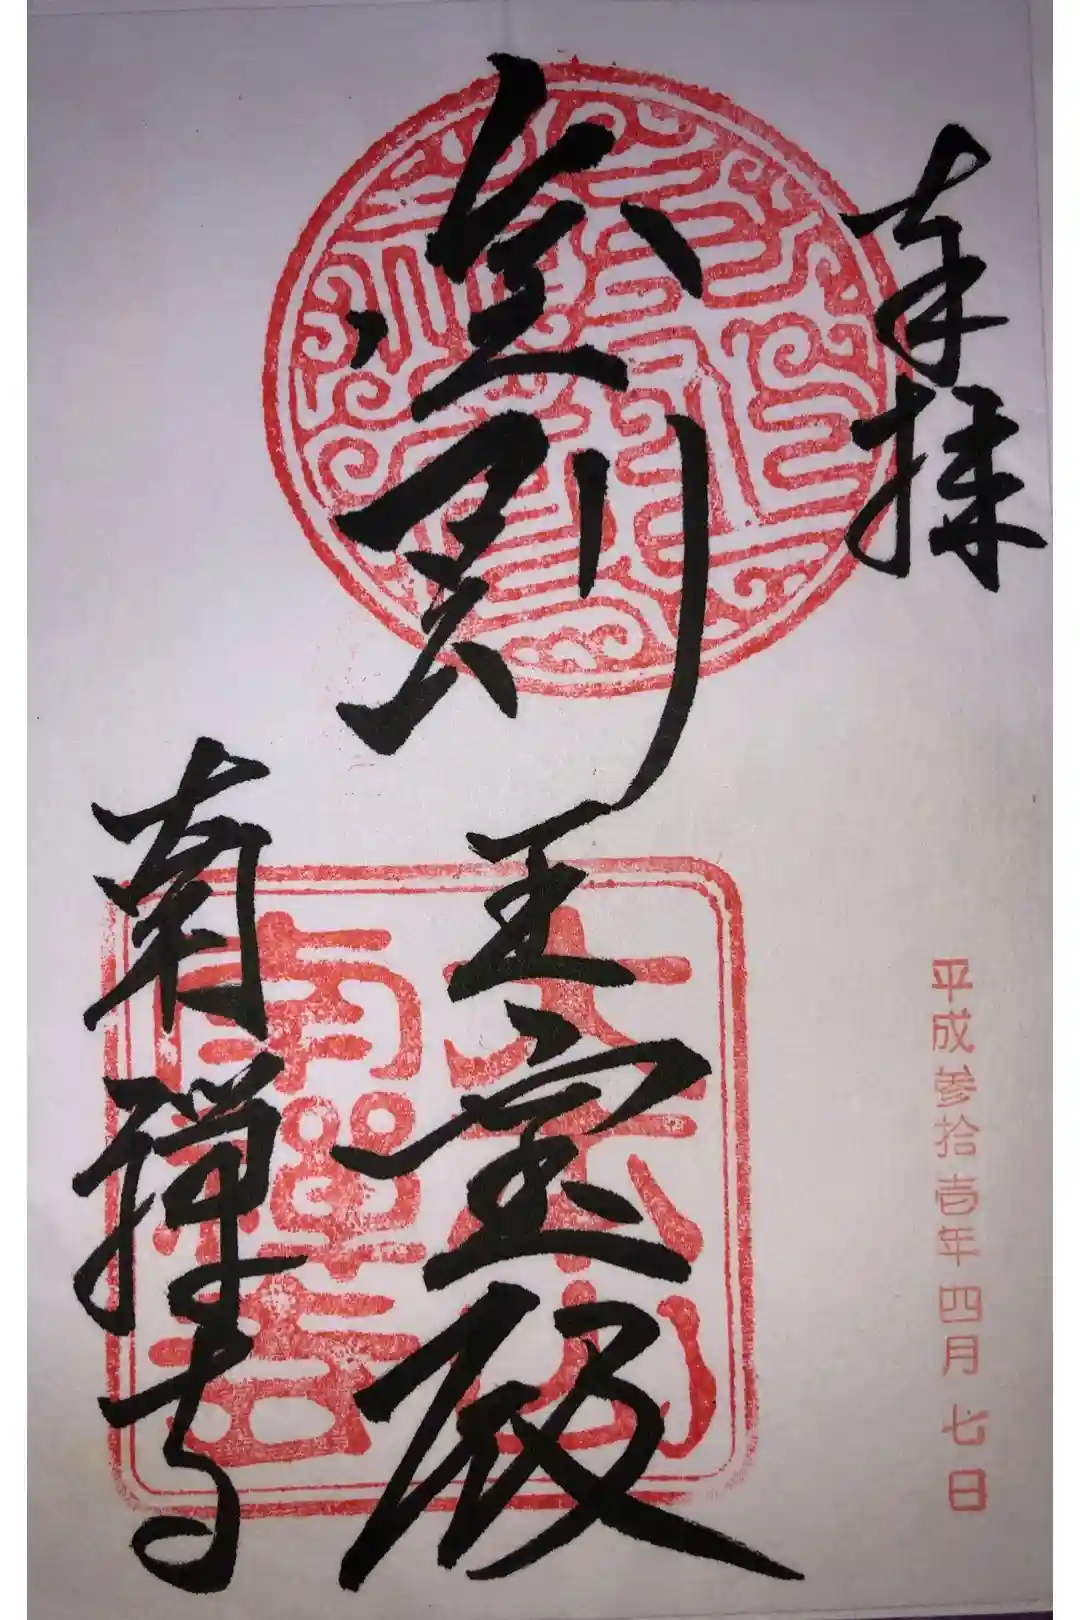 奉拝
平成参拾壱年四月七日
金剛王宝殿
南禪寺